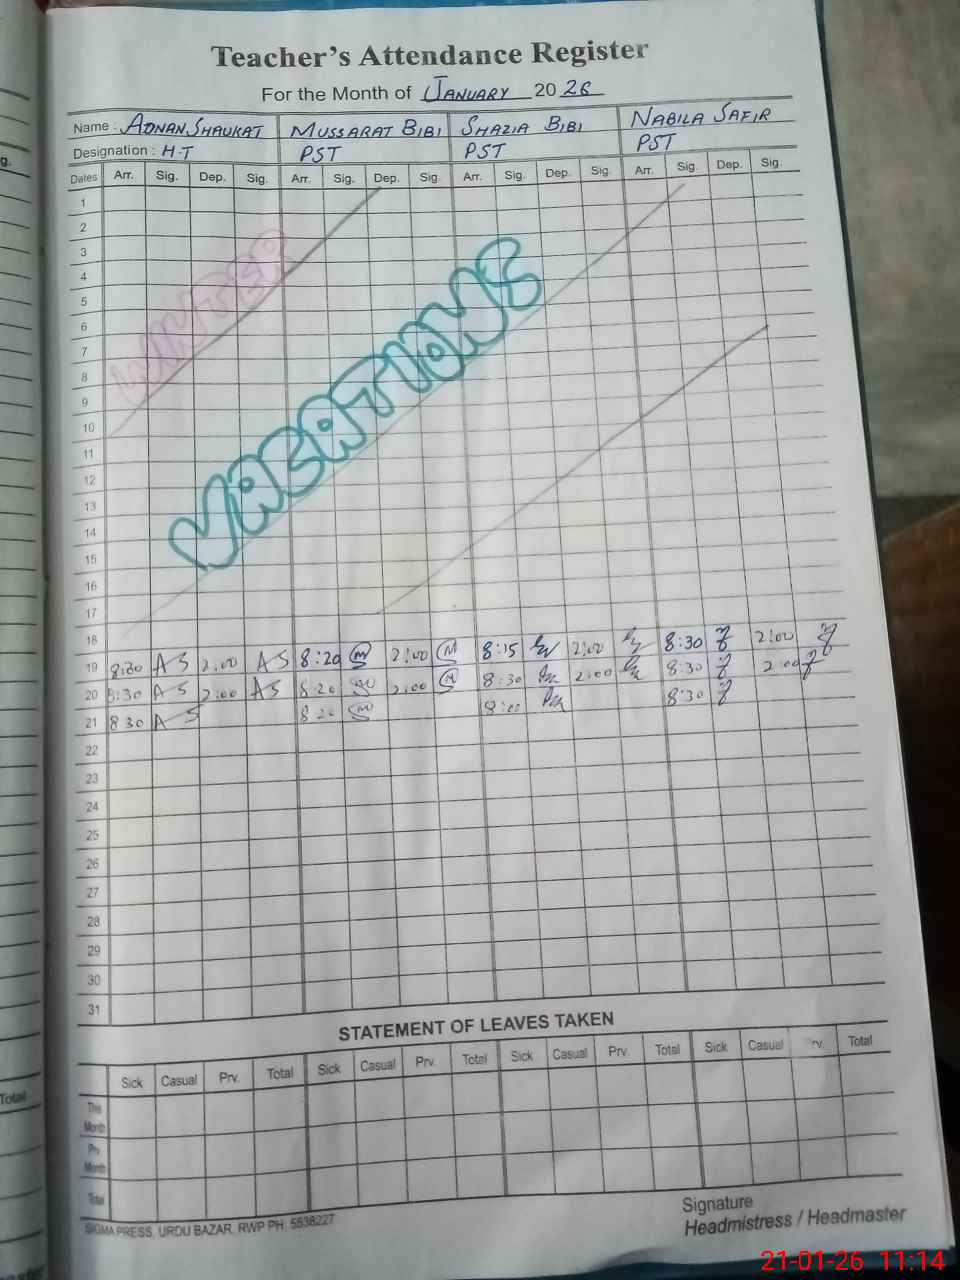 Teacher's Attendance Register
For the Month of JANUARY 20 26
Name : ADNAN SHAUKAT MUSSARAT BIBI SHAZIA BIBI NABILA SAFIR
Designation : H.T PST PST PST
Dates Arr. Sig. Dep. Sig. Arr. Sig. Dep. Sig. Arr. Sig. Dep. Sig. Arr. Sig. Dep. Sig.
1
2
3
4
5
6
7
8
9
10
11
12
13
14
15
16
17
WINTER
VACATIONS
18
19 8:30 AS 2:00 AS 8:20 M 2:00 M 8:15 2:00 8:30 2:00
20 8:30 AS 2:00 AS 8:20 2:00 8:30 2:00 8:30 2:00
21 8 30 AS 8 20 8:30
22
23
24
25
26
27
28
29
30
31
STATEMENT OF LEAVES TAKEN
Sick Casual Prv. Total Sick Casual Prv. Total Sick Casual Prv. Total Sick Casual Prv. Total
This Month
Prv Month
Total
SIGMA PRESS, URDU BAZAR, RWP PH: 5538227
Signature
Headmistress / Headmaster
21-01-26 11:14